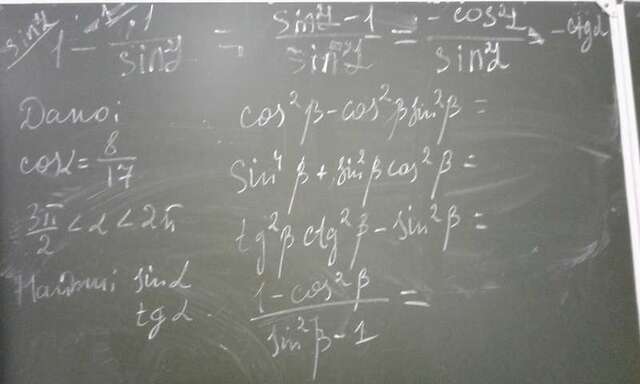 1 - 1/sin²α = sin²α - 1/sin²α = -cos²α/sin²α = -ctgα
Дано:
cosα = 8/17
3π/2 < α < 2π
Найти: sinα
tgα
cos²β - cos²β sin²β =
sin⁴β + sin²β cos²β =
tg²β ctg²β - sin²β =
1 - cos²β/sin²β - 1 =